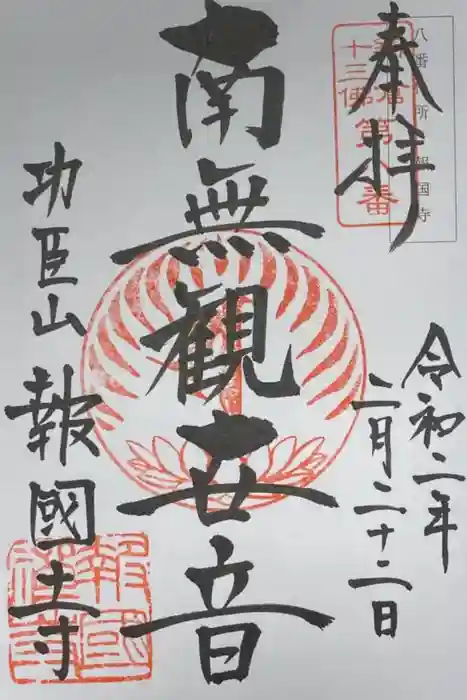 奉拝
八番札所 報国寺
鎌倉
十三佛第八番
令和二年
二月二十二日
南無観世音
功臣山 報國寺
報國禅寺